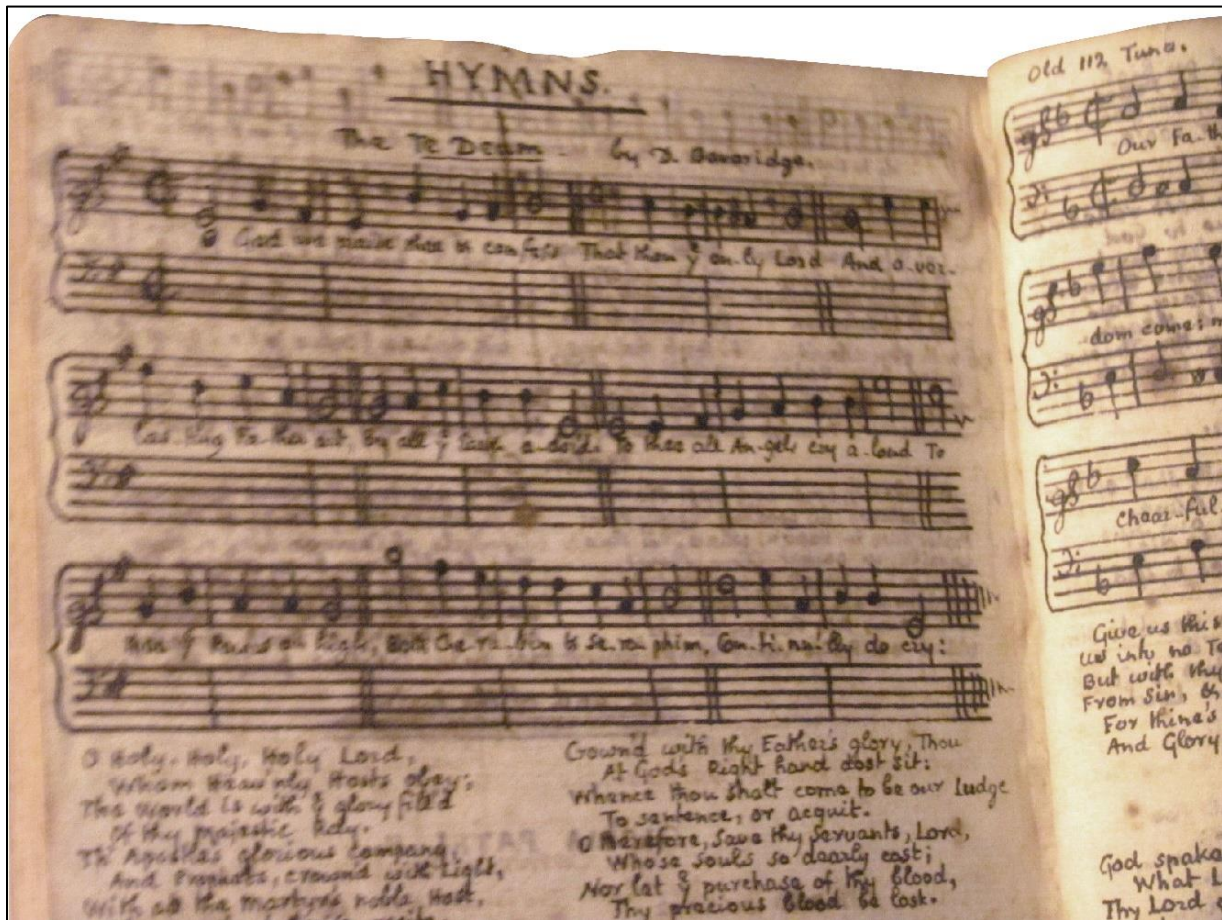 HYMNS.
The Te Deum by D. Beveridge.
O God we praise thee & confess That thou ỹ on-ly Lord And e-ver-
las-ting Fa-ther art, By all ỹ Earth a-dor'd. To thee all An-gels cry a-loud To
thee ỹ on high, Both Che-ru-bin & Se-ra-phim, Con-ti-nu-'lly do cry:
O Holy, Holy, Holy Lord,
Whom Heav'nly Hosts obey;
The World is with ỹ glory fill'd
Of thy Majestic Ray.
Th' Apostles glorious company,
And Prophets, crown'd with Light,
With all the Martyrs noble Host,
Crown'd with thy Father's glory, Thou
At God's Right hand dost sit:
Whence thou shalt come to be our Iudge
To sentence, or acquit.
O therefore, Save thy Servants, Lord,
Whose Souls so dearly cost;
Nor let ỹ purchase of thy blood,
Thy precious blood be lost.
Old 112 Tune.
Our Fa-th
dom come; n
Chear-ful
Give us this
us into no T
But with thy
From Sin, &
For thine's
And Glory
God spake
What L
Thy Lord